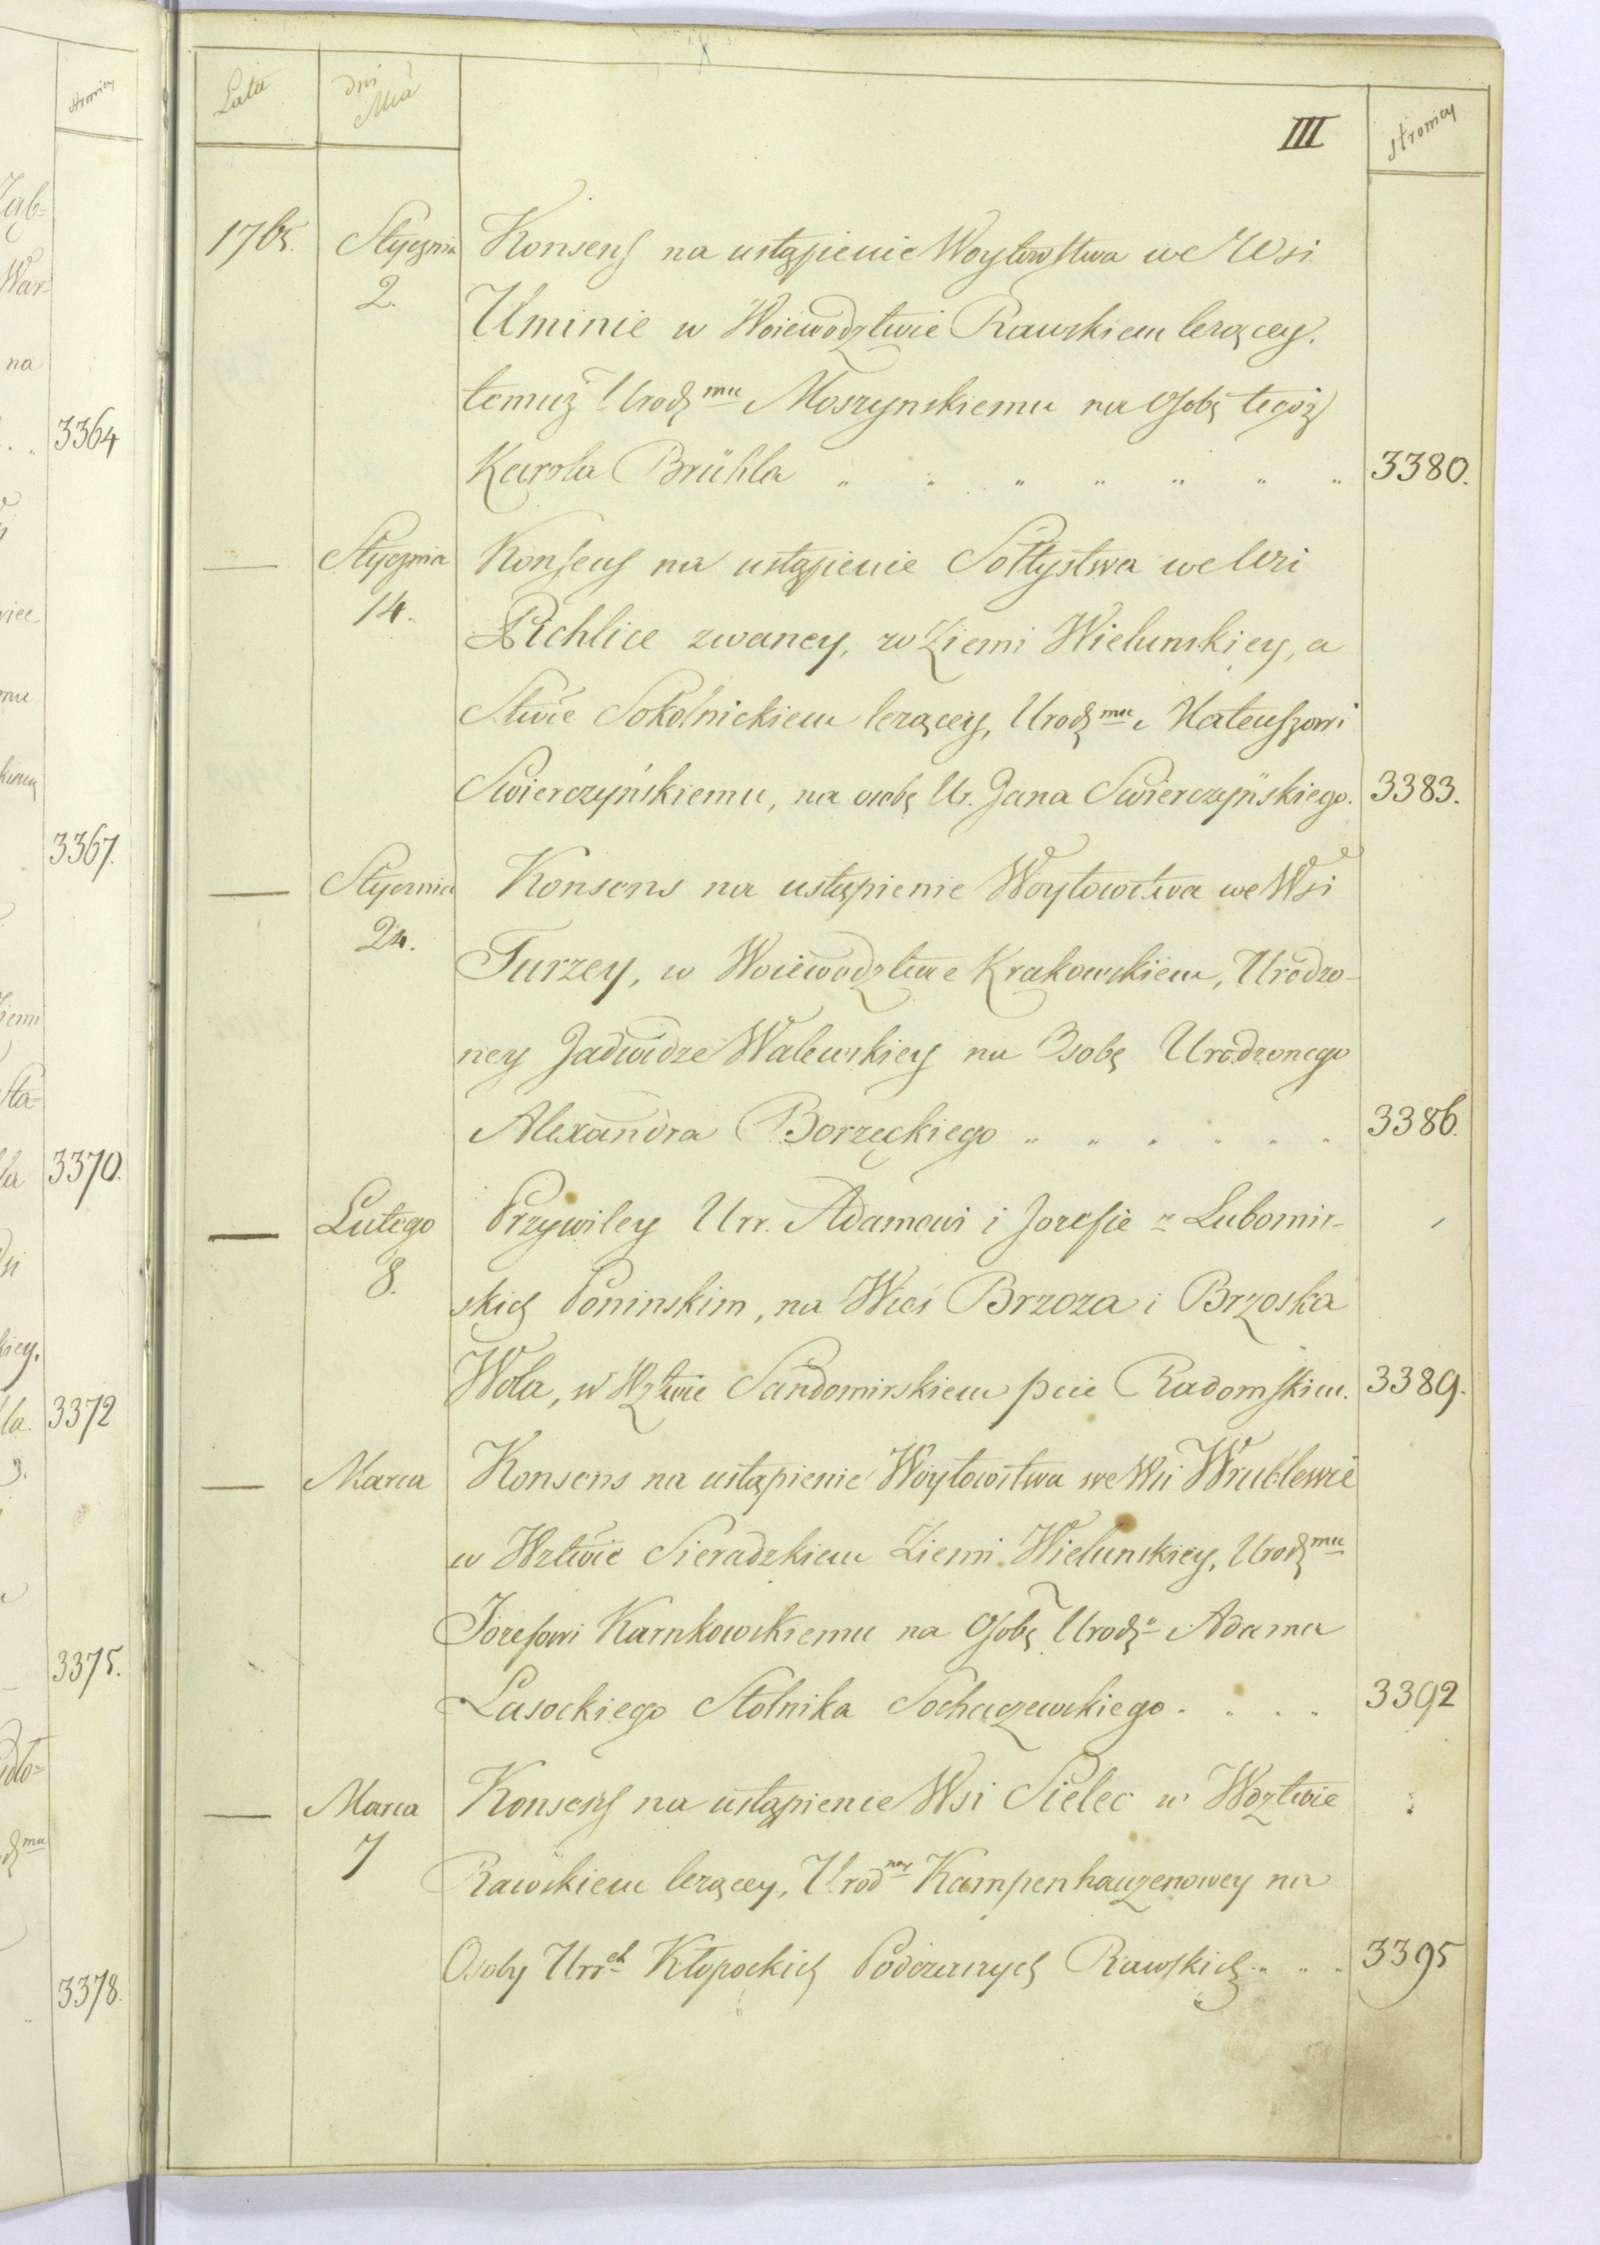 Lata
dni
Mia
III
stronicy
1765.
Stycznia
2.
Konsens na ustąpienie Woytowstwa we Wsi
Uminie w Woiewodztwie Rawskiem lezącey.
temuż Urodzmu Moszynskiemu na Osobę tegoż
Karola Brühla
3380.
Stycznia
14.
Konsens na ustąpienie Sołtystwa we Wsi
Pichlice zwaney, w Ziemi Wielunskiey, a
Stwie Sokolnickiem lezącey, Urodzmu Mateuszowi
Swierczyńskiemu, na osobę Ur. Jana Swierczyńskiego.
3383.
Stycznia
24.
Konsens na ustąpienie Woytowstwa we Wsi
Turzey, w Woiewodztwie Krakowskiem, Urodzo-
ney Jadwidze Walewskiey na Osobę Urodzonego
Alexandra Borzęckiego
3386.
Lutego
8.
Przywiley Urr. Adamowi i Jozefie z Lubomir-
skich Poninskim, na Wieś Brzoza i Brzoska
Wola, w Wztwie Sandomirskiem pcie Radomskim.
3389.
Marca
Konsens na ustąpienie Woytowstwa we Wsi Wrublewie
w Wztwie Sieradzkiem Ziemi Wielunskiey, Urodzmu
Jozefowi Karnkowskiemu na Osobę Urodzo Adama
Lasockiego Stolnika Sochaczewskiego
3392
Marca
7
Konsens na ustąpienie Wsi Sielec w Wdztwie
Rawskiem lezącey, Urodney Kampenhauzenowey na
Osoby Urrch Kłopockich Podczaszych Rawskich
3395
3364
3367.
3370.
3372
3375.
3378.